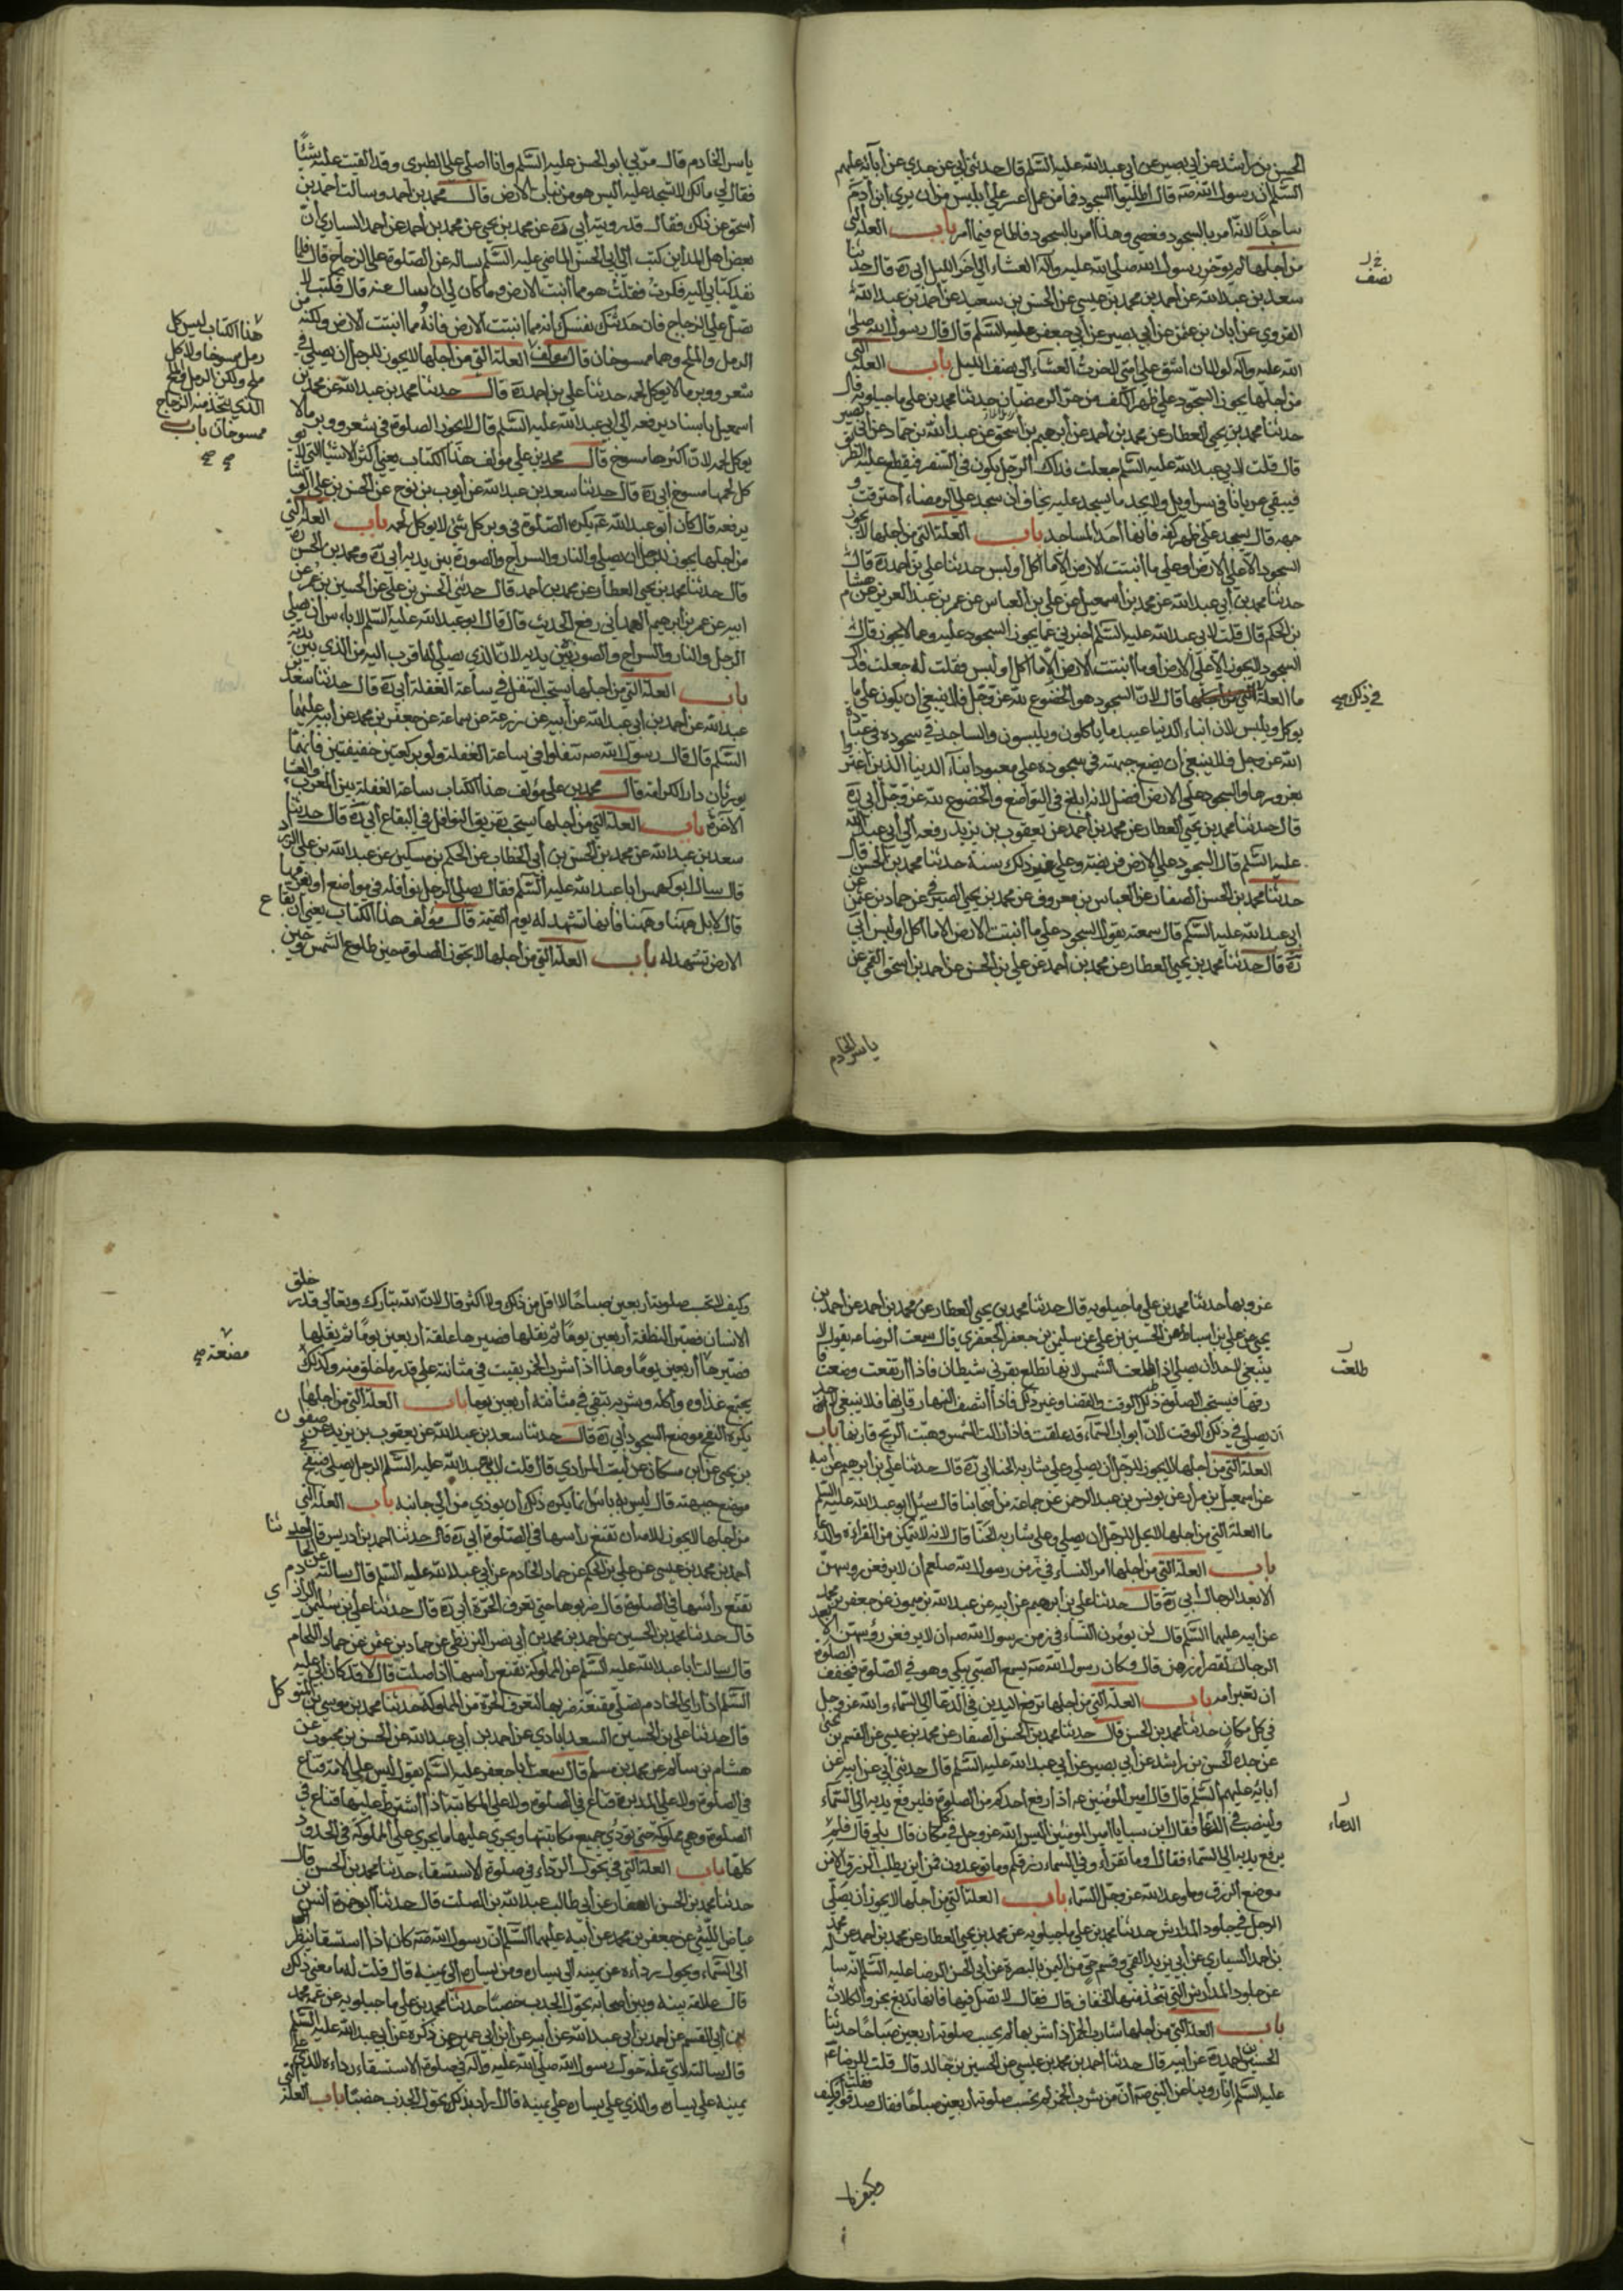 الحسن بن راشد عن أبي بصير عن أبي عبد الله عليه السلم قال حدثني أبي عن جدي عن آبائه عليهم
السلم أن رسول الله صه قال أطيلوا السجود فما من عمل أعسر علي أبليس من أن يري ابن آدم
ساجدًا لانه أمر بالسجود فعصي وهذا أمر بالسجود فاطاع فيما أمر باب العلة التي
من أجلها لم يوخر رسول الله صلي الله عليه وآله العشاء الي آخر الليل أبي ره قال حدثنا
نصف
سعد بن عبد الله عن أحمد بن محمد بن عيسي عن الحسن بن سعيد عن أحمد بن عبد الله
القروي عن أبان بن عثمن عن أبي بصير عن أبي جعفر عليه السلم قال قال رسول الله صلي
الله عليه وآله لولا ان أشق علي أمتي لاخرت العشاء الي نصف الليل باب العلة التي
من أجلها يجوز السجود علي ظهر الكف من حر الرمضاء حدثنا محمد بن علي ماجيلويه قال
حدثنا محمد بن يحيي العطار عن محمد بن أحمد عن أبرهيم بن أسحق عن عبد الله بن حماد عن أبي بصير
قال قلت لابي عبد الله عليه السلم جعلت فداك الرجل يكون في السفر فيقطع عليه الطريق
فيبقي عريانا في سراويل ولا يجد ما يسجد عليه يخاف أن سجد علي الرمضاء احترقت
جبهه قال يسجد علي ظهر كفه فانها أحد المساجد باب العلة التي من اجلها لا يجوز
السجود الا علي الارض أو علي ما أنبتت الارض الا ما أكل أو لبس حدثنا علي بن أحمد ره قال
حدثنا محمد بن أبي عبد الله عن محمد بن أسمعيل عن علي بن العباس عن عمر بن عبد العزيز عن هشام
بن الحكم قال قلت لابي عبد الله عليه السلم أخبرني عما يجوز السجود عليه وعما لا يجوز قال
السجود لا يجوز الا علي الارض أو ما أنبتت الارض الا ما أكل أو لبس فقلت له جعلت فداك
ما العلة في ذلك قال لان السجود هو الخضوع لله عز وجل فلا ينبغي ان يكون علي ما
يوكل ويلبس لان ابناء الدنيا عبيد ما ياكلون ويلبسون والساجد في سجوده في عبادة
الله عز وجل فلا ينبغي أن يضع جبهته في سجوده علي معبود ابناء الدنيا الذين اغتروا
بغرورها والسجود علي الارض أفضل لانه ابلغ في التواضع والخضوع لله عز وجل أبي ره
قال حدثنا محمد بن يحيي العطار عن محمد بن أحمد عن يعقوب بن يزيد رفعه الي أبي عبد الله
عليه السلم قال السجود علي الارض فريضة وعلي غير ذلك سنة حدثنا محمد بن الحسن قال
حدثنا محمد بن الحسن الصفار عن العباس بن معروف عن محمد بن يحيي الصيرفي عن حماد بن عثمن عن
ابي عبد الله عليه السلم قال سمعته يقول السجود علي ما أنبتت الارض الا ما أكل أو لبس أبي
ره قال حدثنا محمد بن يحيي العطار عن محمد بن أحمد عن علي بن الحسن عن احمد بن اسحق القمي عن
ياسر الخادم
ياسر الخادم قال مر بي أبو الحسن عليه السلم وأنا أصلي علي الطبري وقد القيت عليه شيئًا
فقال لي مالك لا تسجد عليه أليس هو من نبات الارض قال محمد بن أحمد وسالت أحمد بن
أسحق عن ذلك فقال قد رويته أبي ره عن محمد بن يحيي عن محمد بن أحمد عن احمد السياري أن
بعض أهل المداين كتب الي أبي الحسن الماضي عليه السلم يساله عن الصلوة علي الزجاج قال فلما
نفذ كتابي اليه فكرت فقلت هو مما أنبتت الارض وما كان لي ان اسال عنه قال فكتب لا
تصل علي الزجاج فان حدثتك نفسك انه مما انبتت الارض فانه مما انبتت الارض ولكنه من
الرمل والملح وهما ممسوخان قال مولف
هذا الكتاب ليس كل
رمل ممسوخا ولا كل
ملح ولكن الرمل والملح
الذي يتخذ منه الزجاج
ممسوخان باب
العلة التي من أجلها لا يجوز للرجل ان يصلي في
شعر ووبر ما لا يوكل لحمه حدثنا علي بن احمد ره قال حدثنا محمد بن عبد الله عن محمد بن
اسمعيل باسناد يرفعه الي أبي عبد الله عليه السلم قال لا يجوز الصلوة في شعر ووبر ما لا
يوكل لحمه لان أكثرها مسوخ قال محمد بن علي مولف هذا الكتاب يعني أكثر الاشياء التي لا يو
كل لحمها مسوخ أبي ره قال حدثنا سعد بن عبد الله عن أيوب بن نوح عن الحسن بن علي الوشا
يرفعه قال كان أبو عبد الله ع يكره الصلوة في وبر كل شئ لا يوكل لحمه باب العلة التي
من اجلها يجوز للرجل ان يصلي والنار والسراج والصورة بين يديه أبي ره ومحمد بن الحسن ره
قال حدثنا محمد بن يحيي العطار عن محمد بن أحمد قال حدثني الحسن بن علي عن الحسين بن عمر عن
ابيه عن عمر بن أبرهيم الهمداني رفع الحديث قال قال ابو عبد الله عليه السلم لا باس أن يصلي
الرجل والنار والسراج والصورة بين يديه لان الذي يصلي له أقرب اليه من الذي بين يديه
باب العلة التي من أجلها يستحب التنفل في ساعة الغفلة أبي ره قال حدثنا سعد بن
عبد الله عن أحمد بن أبي عبد الله عن أبيه عن زرعة عن سماعة عن جعفر بن محمد عن أبيه عليهما
السلم قال قال رسول الله صه تنفلوا في ساعة الغفلة ولو بركعتين خفيفتين فانهما
يورثان دار الكرامة قال محمد بن علي مؤلف هذا الكتاب ساعة الغفلة بين المغرب والعشا
الآخرة باب العلة التي من أجلها يستحب تفريق النوافل في البقاع أبي ره قال حدثنا
سعد بن عبد الله عن محمد بن الحسن بن أبي الخطاب عن الحكم بن مسكين عن عبد الله بن علي الزراد
قال سال ابو كهمس ابا عبد الله عليه السلم فقال يصلي الرجل نوافله في مواضع أو يفرقها
قال لا بل ههنا وههنا فانها تشهد له يوم القيمة قال مؤلف هذا الكتاب يعني أن بقاع
الارض تشهد له باب العلة التي من أجلها لا تجوز الصلوة حين طلوع الشمس وحين
غروبها حدثنا محمد بن علي ماجيلويه قال حدثنا محمد بن يحيي العطار عن محمد بن احمد عن احمد بن
يحيي عن علي بن اسباط عن الحسين بن علي عن سليمن بن جعفر الجعفري قال سمعت الرضا عه يقول لا
طلعت
ينبغي لاحد ان يصلي اذا طلعت الشمس لانها تطلع بقرني شيطان فاذا ارتفعت وضعفت فا
رقها فيستحب الصلوة ذلك الوقت والقضاء وغير ذلك فاذا انتصف النهار قارنها فلا ينبغي لاحد
أن يصلي في ذلك الوقت لان أبواب السماء قد غلقت فاذا زالت الشمس وهبت الريح فارقها باب
العلة التي من أجلها لا يجوز للرجل أن يصلي وعلي شاربه الحنا أبي ره قال حدثنا علي بن أبرهيم عن أبيه
عن اسمعيل بن مرار عن يونس بن عبد الرحمن عن جماعة من أصحابنا قال سئل ابو عبد الله عليه السلم
ما العلة التي من أجلها لا يحل للرجل أن يصلي وعلي شاربه الحنا قال لانه لا يتمكن من القراءة والدعا
باب العلة التي من أجلها أمر النساء في زمن رسول الله صلعم ان لا يرفعن روسهن
الا بعد الرجال أبي ره قال حدثنا علي بن أبرهيم عن أبيه عن عبد الله بن ميمون عن جعفر بن محمد
عن أبيه عليهما السلم قال كن يومرن النساء في زمن رسول الله صه ان لا يرفعن رؤسهن الا بعد
الرجال لقصر أزرهن قال وكان رسول الله صه يسمع الصبي يبكي وهو في الصلوة فيخفف الصلوة
ان تعبر امه باب العلة التي من اجلها ترفع اليدين في الدعا الي السماء والله عز وجل
في كل مكان حدثنا محمد بن الحسن قال حدثنا محمد بن الحسن الصفار عن محمد بن عيسي عن القسم بن يحيي
عن جده الحسن بن راشد عن أبي بصير عن أبي عبد الله عليه السلم قال حدثني أبي عن أبيه عن
آبائه عليهم السلم قال قال أمير المؤمنين عه اذا رفع أحدكم من الصلوة فليرفع يديه الي السماء
الدعاء
ولينصب في الدعا فقال ابن سبا يا أمير المومنين اليس الله عز وجل في كل مكان قال بلي قال فلم
يرفع يديه الي السماء فقال أو ما تقرأ وفي السماء رزقكم وما توعدون فمن اين يطلب الرزق الا من
موضع الرزق وما وعد الله عز وجل السماء باب العلة التي من أجلها لا يجوز أن يصلي
الرجل في جلود الدارش حدثنا محمد بن علي ماجيلويه عن محمد بن يحيي العطار عن محمد بن احمد عن محمد
بن احمد السياري عن أبي يزيد القمي وقسم حي من اليمن بالبصرة عن أبي الحسن الرضا عليه السلم انه ساله
عن جلود الدارش التي تتخذ منها الخفاف قال فقال لا تصل فيها فانها تدبغ بخرؤ الكلاب
باب العلة التي من أجلها شارب الخمر اذا شربها لم يحسب صلوته أربعين صباحا حدثنا
الحسين بن احمد ره عن أبيه قال حدثنا أحمد بن محمد بن عيسي عن الحسين بن خالد قال قلت للرضا ع
عليه السلم إنا روينا عن النبي صه أن من شرب الخمر لم تحسب صلوته أربعين صباحا فقال صدقوا فقلت وكيف
وكيف لا
وكيف لا تحسب صلوته أربعين صباحًا لا اقل من ذلك ولا اكثر قال لان الله تبارك وتعالي قدر خلق
الانسان فصير النطفة أربعين يومًا ثم نقلها فصيرها علقة أربعين يومًا ثم نقلها
مضغة صح
فصيرها أربعين يومًا وهذا اذا شرب الخمر بقيت في مثانته علي قدر ما خلق منه وكذلك
يجتمع غذاوه وأكله وشربه تبقي في مثانته أربعين يوما باب العلة التي من أجلها
يكره النفخ موضع السجود أبي ره قال حدثنا سعد بن عبد الله عن يعقوب بن يزيد عن صفون
بن يحيي عن ابن مسكان عن ليث المرادي قال قلت لابي عبد الله عليه السلم الرجل يصلي فينفخ في
موضع جبهته قال ليس به باس انما يكره ذلك أن يوذي من الي جانبه باب العلة التي
من اجلها لا يجوز للامة ان تقنع راسها في الصلوة أبي ره قال حدثنا احمد بن ادريس قال حدثنا
أحمد بن محمد بن عيسي عن علي بن الحكم عن حماد الخادم عن أبي عبد الله عليه السلم قال سالته عن الخادم
تقنع رأسها في الصلوة قال ضربوها حتي تعرف الحرة أبي ره قال حدثنا علي بن سليمن الرازي
قال حدثنا محمد بن الحسين عن احمد بن محمد بن أبي نصر البزنطي عن حماد بن عثمن عن حماد اللحام
قال سالت أبا عبد الله عليه السلم عن المملوكة تقنع رأسها اذا صلت قال لا قد كان أبي عليه
السلم اذا راي الخادم تصلي مقنعة ضربها لتعرف الحرة من المملوكة حدثنا محمد بن موسي بن المتوكل
قال حدثنا علي بن الحسين السعد ابادي عن احمد بن أبي عبد الله عن الحسن بن محبوب عن
هشام بن سالم عن محمد بن مسلم قال سمعت أبا جعفر عليه السلم يقول ليس علي الامة قناع
في الصلوة ولا علي المدبرة قناع في الصلوة ولا علي المكاتبة اذا اشترط عليها قناع في
الصلوة وهي مملوكة حتي تودي جميع مكاتبتها ويجري عليها ما يجري علي المملوكة في الحدود
كلها باب العلة التي في تحول الرداء في صلوة الاستسقاء حدثنا محمد بن الحسن قال
حدثنا محمد بن الحسن الصفار عن أبي طالب عبد الله بن الصلت قال حدثنا أبو ضمرة أنس بن
عياض الليثي عن جعفر بن محمد عن أبيه عليهما السلم ان رسول الله صه كان اذا استسقا ينظر
الي السماء ويحول رداءه عن يمينه الي يساره ومن يساره الي يمينه قال قلت له ما معني ذلك
قال علامة بينه وبين أصحابه تحول الجدب خصبًا حدثنا محمد بن علي ماجيلويه عن عمه محمد
بن أبي القسم عن احمد بن أبي عبد الله عن أبيه عن ابن أبي عمير عمن ذكره عن أبي عبد الله عليه السلم
قال سالته لاي علة حول رسول الله صلي الله عليه وآله في صلوة الاستسقاء رداءه الذي علي
يمينه علي يساره والذي علي يساره علي يمينه قال أراد بذلك تحول الجدب خصبًا باب العلة التي